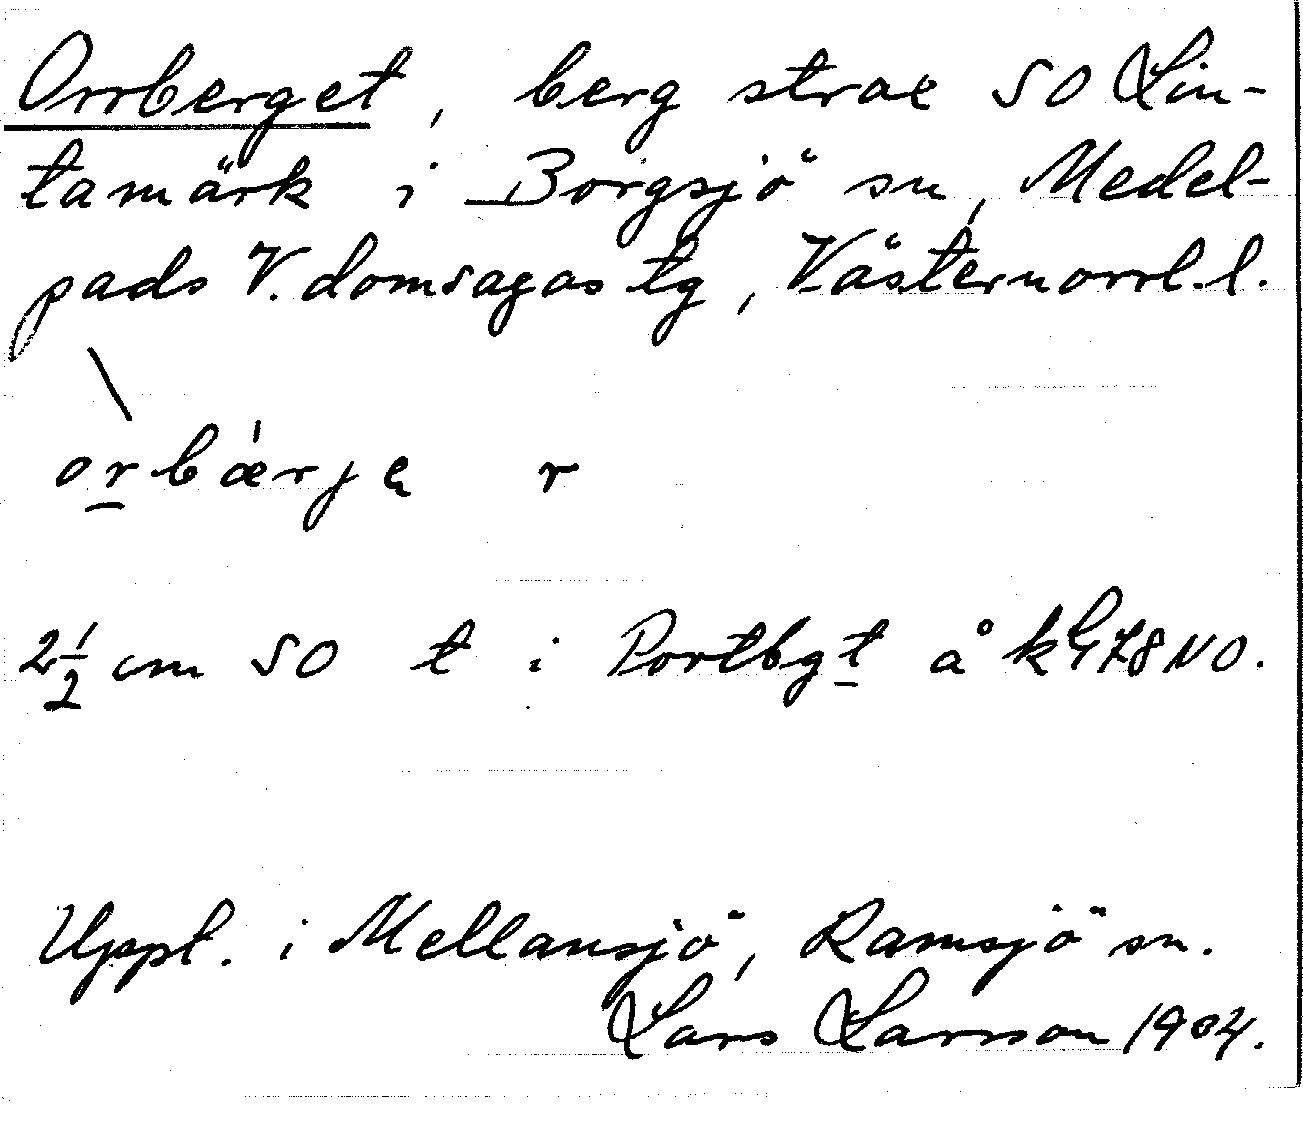 Orrberget, berg strax SO Lin-
tamärk i Borgsjö sn, Medel-
pads V. domsagas tg, Västernorrl. l.
\
orbæ̍rję r
2½ cm SO t i Portbgt å kbl 78 NO.
Uppt. i Mellansjö, Ramsjö sn.
Lars Larsson 1904.